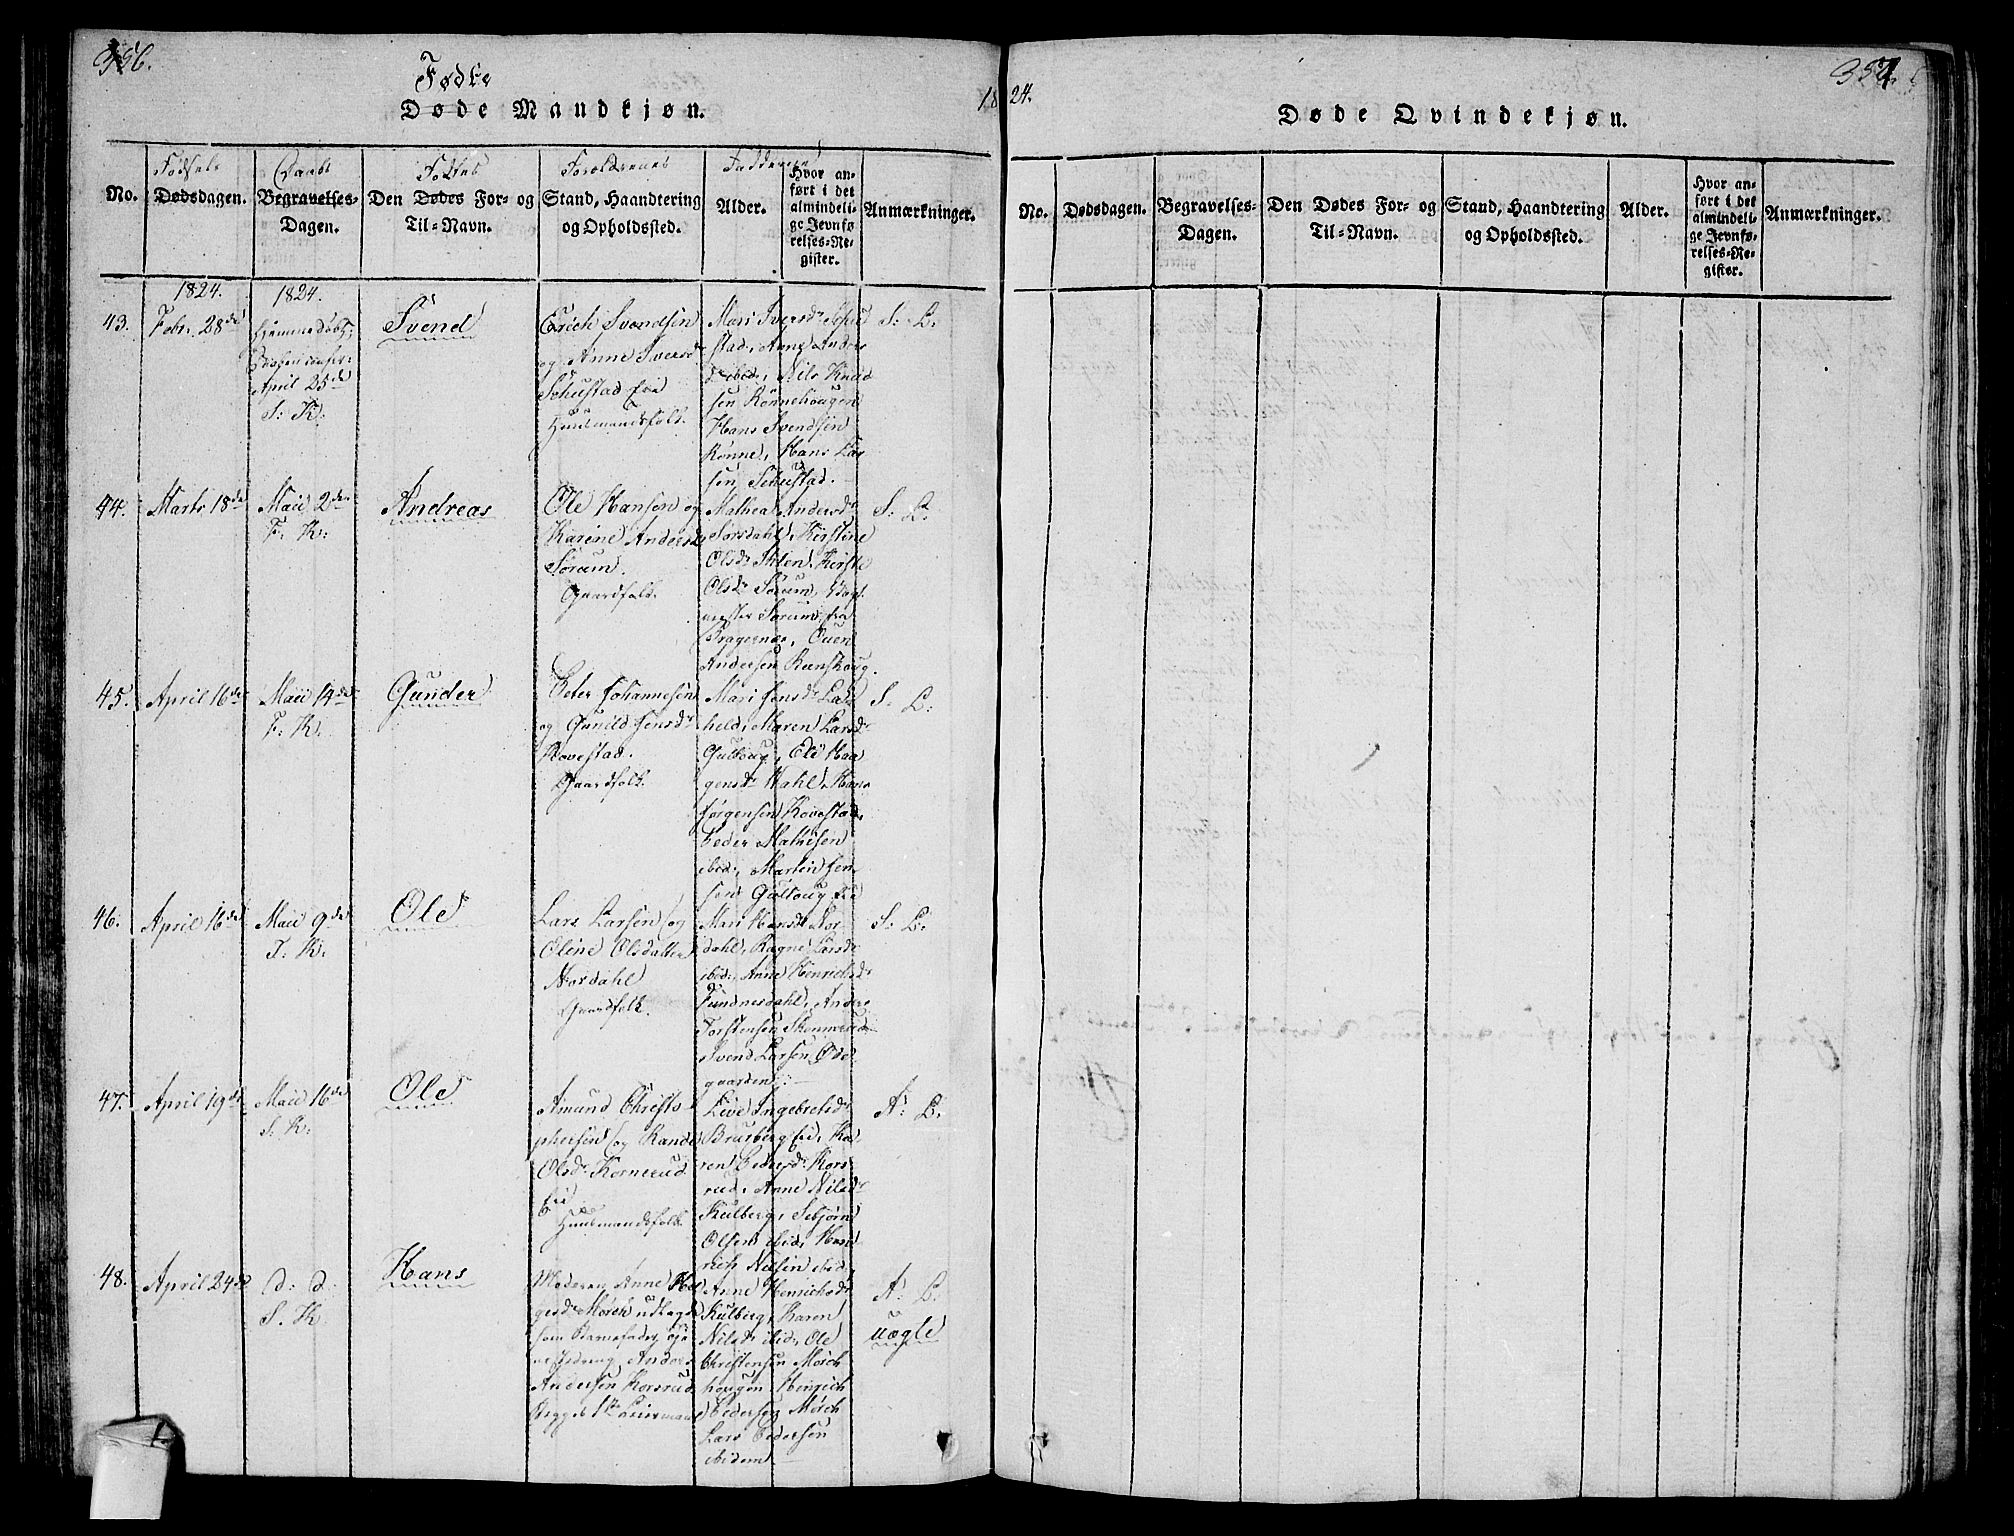 356.
Fødte
Døde Mandkjøn.
18
Fødsels
Daabs
Fødtes
Forældrenes
Faddernes
No.
Dødsdagen.
Begravelses-
Dagen.
Den Dødes For- og
Til-Navn.
Stand, Haandtering
og Opholdssted.
Alder.
Hvor an-
ført i det
almindeli-
ge Jevnfø-
relses-Re-
gister.
Anmærkninger.
1824.
1824.
43.
Febr. 28de
Hjemmedøbt,
April 25de
S: K:
Svend
Erich Svendsen
og Anne Iversd:
Schustad Eie
Huusmandsfolk.
Mari Iversdr Schu
stad, Anne Anders
dr ibid:, Nils Knud
sen Rønnehougen
Hans Svendsen
Rønne, Hans Lar
sen Schustad.
S: L:
44.
Marts 18de
Maii 2den
F: K:
Andreas
Ole Hansen og
Karine Andersdr
Sørum.
Gaardfolk.
Mathea Andersdr
Sørsdahl, Kirstine
Olsdr Stilen, Kirstie
Olsdr Sørum,
mester Sørum fra
Bragernes, Even
Andersen Reenskoug.
S: L:
45.
April 16de
Maii 14de
F: K:
Gunder
Peter Johannesen
og Gunild Jensdr
Rovestad.
Gaardfolk.
Mari Jensdr Las
held, Maren Larsdr
Gulloug, Ole Haa
gensdr Wahl, Hans
Jørgensen Rovestad,
Peder Mathisen
ibid:, Martin Jen
sen Gulloug Eie
S: L:
46.
April 16de
Maii 9de
F: K:
Ole
Lars Larsen og
Oline Olsdatter
Nordahl
Gaardfolk.
Mari Hansdr Nor
dahl, Ragne Larsdr
ibid:, Anne Henrichsdr
Fundnesdahl, Anders
Torstensen Skommerud
Svend Larsen Øde
gaarden.
S: L:
47.
April 19de
Maii 16de
S: K:
Ole
Amund Christo
phersen og Rande
Olsdr Kornerud
Eie
Huusmandsfolk
Live Ingebretsdr
Brusberg Eie, Ka
ren Pedersdr Kors
rud, Anne Nilsdr
Kulberg, Sebjørn
Olsen ibid, Hen
rich Nilsen ibid.
A: L:
48.
April 24de
d: d:
S. K.
Hans
Moderen Anne Hel
gesdr Mørch udlagde
som Barnefader
Anders
Andersen Korsrud
Begges 1ste Leiermaal
Anne Henrichsdr
Kulberg, Karen
Nilsdr ibid, Ole
Christensen Mørch
hougen Henrich
Pedersen Mørch
Lars Pedersen
ibidem
A: L:
uægte
24.
Døde Qvindekjøn.
No.
Dødsdagen.
Begravelses-
Dagen.
Den Dødes For- og
Til-Navn.
Stand, Haandtering
og Opholdssted.
Alder.
Hvor an-
ført i det
almindeli-
ge Jevnfø-
relses-Re-
gister.
Anmærkninger.